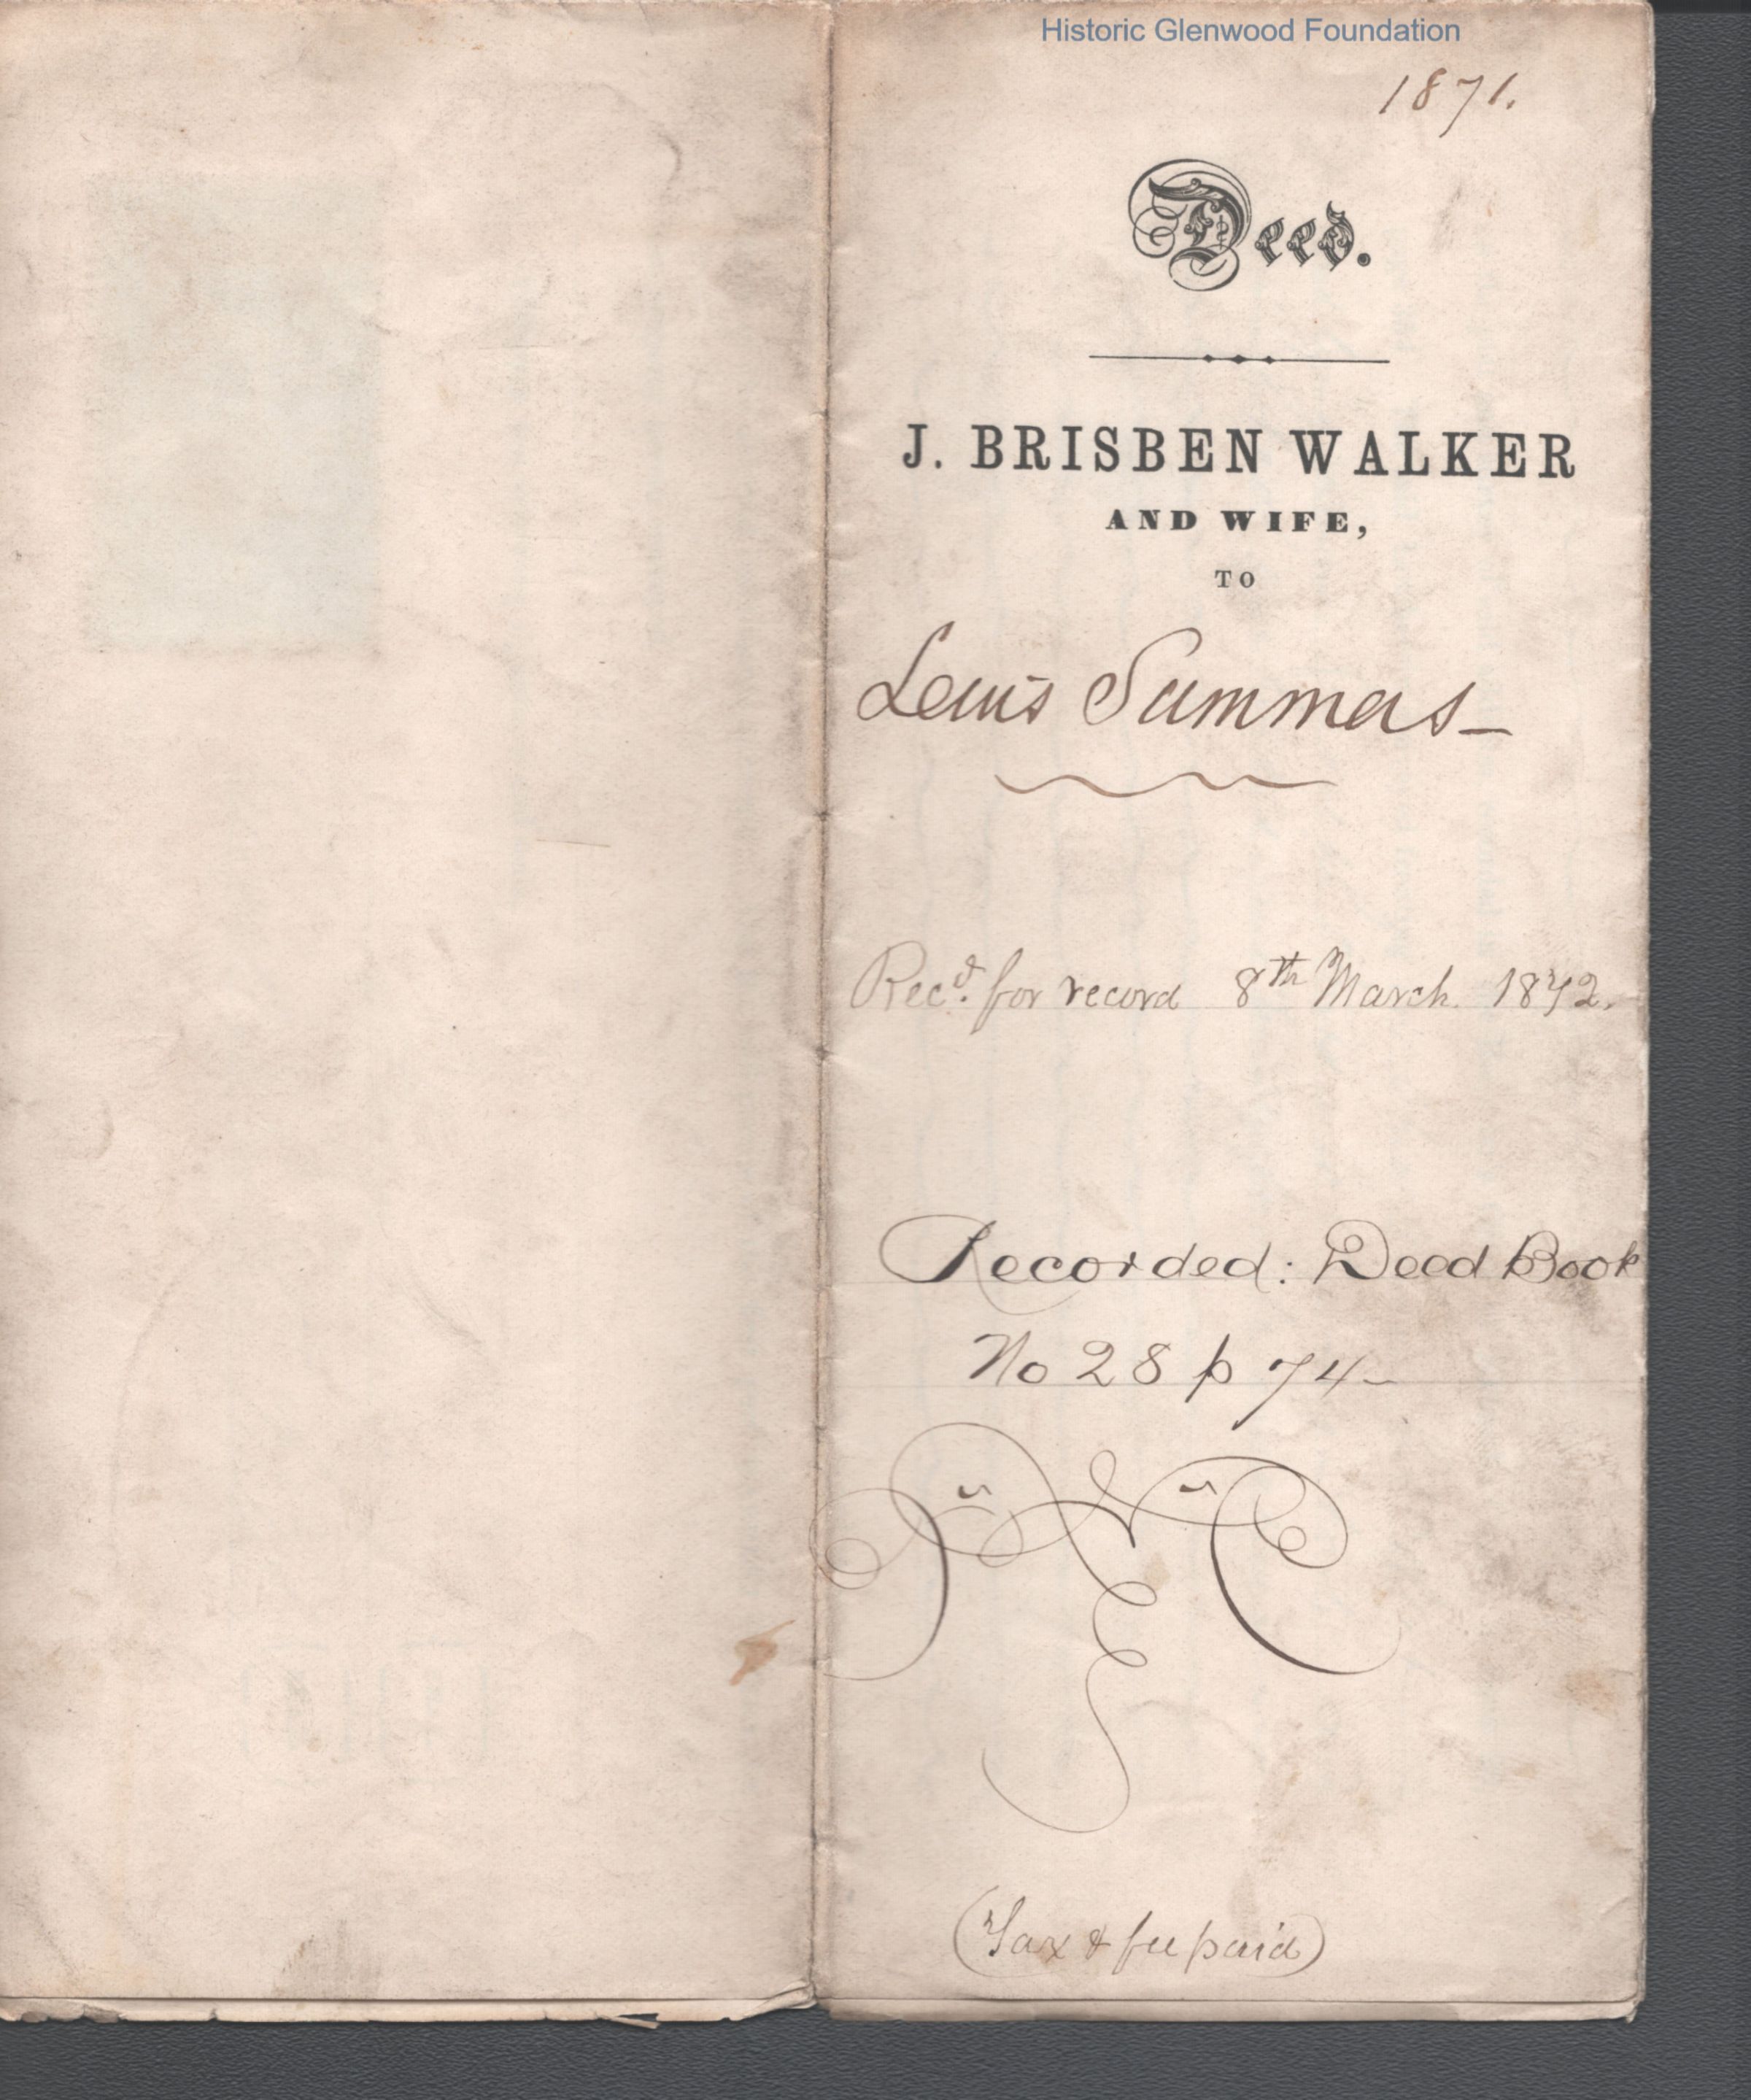 Historic Glenwood Foundation
1871.
Deed.
J. BRISBEN WALKER
AND WIFE,
TO
Lewis Summers
Recd. for record 8th March 1872.
Recorded: Deed Book
No 28 p 74
(Tax & fee paid)